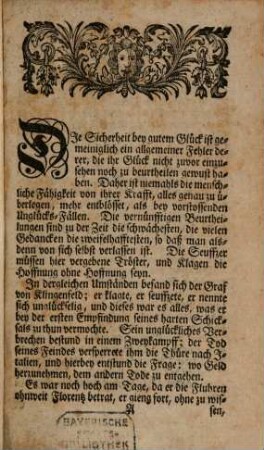 DIe Sicherheit bey gutem Glück ist ge-
meiniglich ein allgemeiner Fehler de-
rer, die ihr Glück nicht zuvor einzu-
sehen noch zu beurtheilen gewust ha-
ben. Daher ist niemahls die mensch-
liche Fähigkeit von ihrer Krafft, alles genau zu ü-
berlegen, mehr entblösset, als bey vorstossenden
Unglücks-Fällen. Die vernünfftigen Beurthei-
lungen sind zu der Zeit die schwächesten, die vielen
Gedancken die zweifelhafftesten, so daß man als-
denn von sich selbst verlassen ist. Die Seuffzer
müssen hier vergebene Tröster, und Klagen die
Hoffnung ohne Hoffnung seyn.
In dergleichen Umständen befand sich der Graf
von Klingenfeld; er klagte, er seuffzete, er nennte
sich unglückselig, und dieses war es alles, was er
bey der ersten Empfindung seines harten Schick-
sals zu thun vermochte. Sein unglückliches Ver-
brechen bestund in einem Zweykampff; der Tod
seines Feindes versperrete ihm die Thüre nach J-
talien, und hierbey entstund die Frage: wo Geld
herzunehmen, dem andern Tode zu entgehen.
Es war noch hoch am Tage, da er die Fluhren
ohnweit Florentz betrat, er gieng fort, ohne zu wis-
A sen,
BAYERISCHE